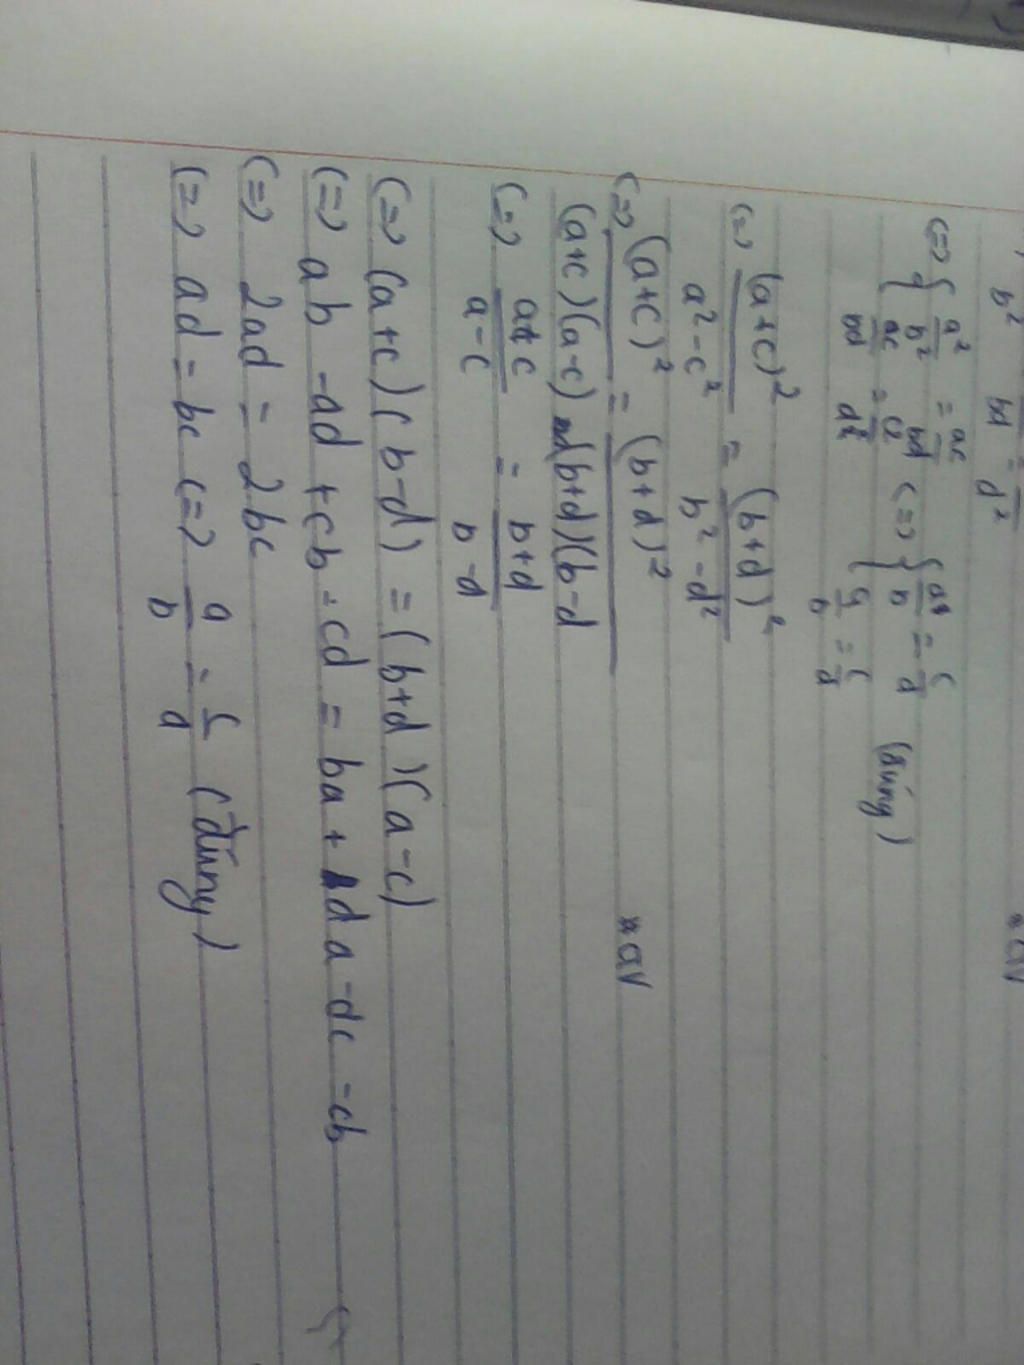 b² bd = d²
(=) { a²/b² = ac/bd (=) { a/b = c/d
{ ac/bd = c²/d² { a/b = c/d (đúng)
(=) (a+c)²/a²-c² = (b+d)²/b²-d²
(=) (a+c)²/(a+c)(a-c) = (b+d)²/(b+d)(b-d
(=) a+c/a-c = b+d/b-d
(=) (a+c)(b-d) = (b+d)(a-c)
(=) ab -ad +cb -cd = ba + da -dc -cb
(=) 2ad = 2bc
(=) ad = bc (=) a/b = c/d (đúng)